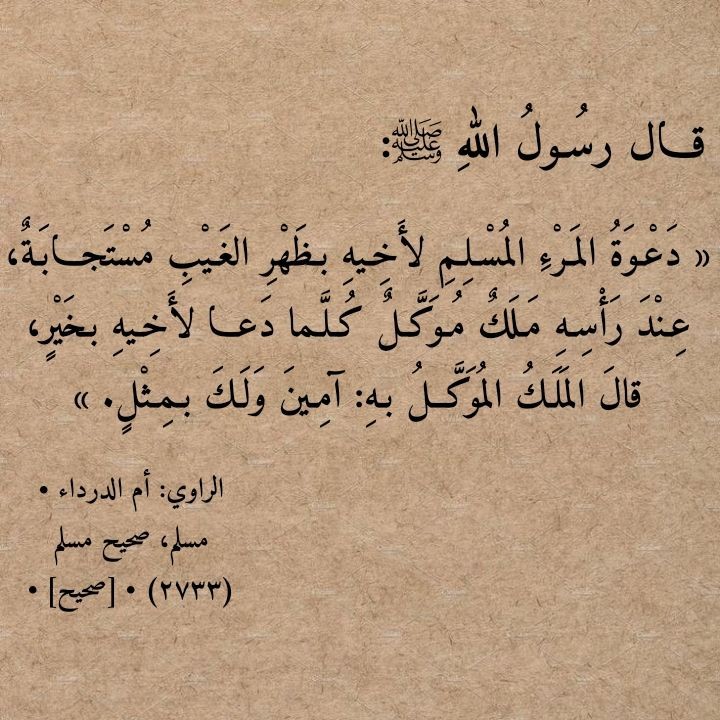 قـــال رسُـولُ اللهِ ﷺ:
« دَعْـوَةُ المَـرْءِ المُسْـلِـمِ لأَخِـيهِ بـظَهْرِ الغَـيْبِ مُسْـتَجــابَـةٌ،
عِنْدَ رَأْسِـهِ مَـلَكٌ مُـوَكَّـلٌ كُـلَّـما دَعـا لأَخِـيهِ بـخَيْرٍ،
قالَ المَلَكُ المُوَكَّــلُ بـهِ: آمِـينَ وَلَـكَ بـمِـثْلٍ. »
الراوي: أم الدرداء •
مسلم، صحيح مسلم
(٢٧٣٣) • [صحيح] •